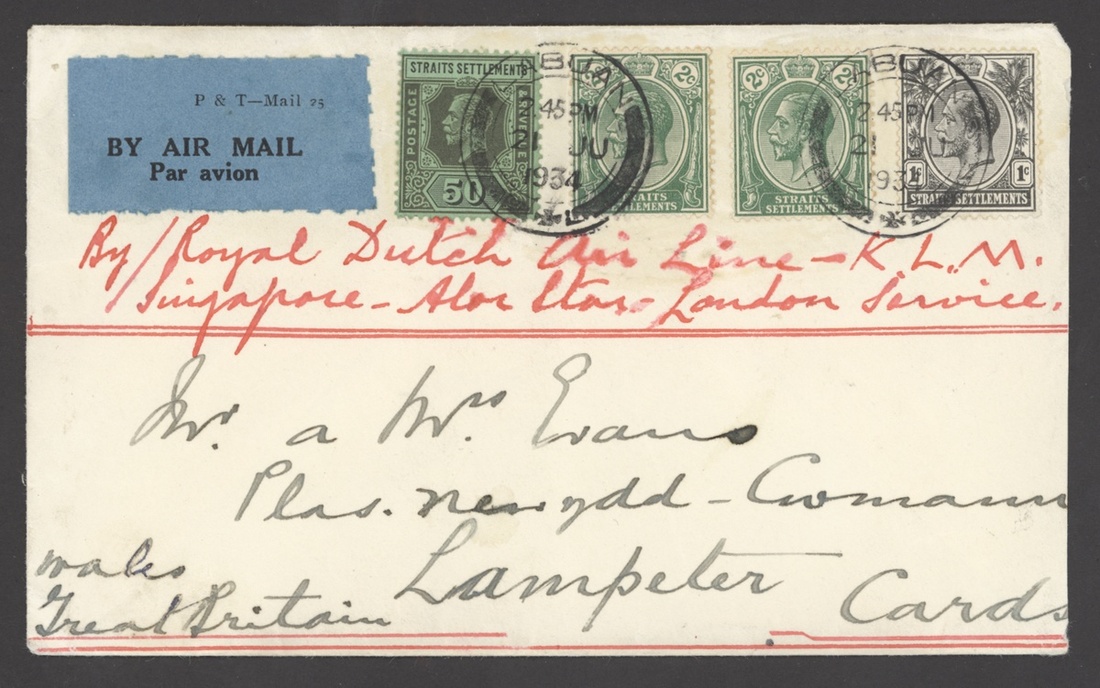 P & T—Mail 25
BY AIR MAIL
Par avion
STRAITS SETTLEMENTS
POSTAGE & REVENUE
50
2c
STRAITS
SETTLEMENTS
2c 2c
STRAITS
SETTLEMENTS
1c 1c
STRAITS SETTLEMENTS
ABUAN
45 PM
21 JU
1934
ABUAN
2 45 PM
21 JU
1934
By / Royal Dutch Air Line - K L.M.
Singapore - Alor Star - London Service.
Mr. a Mrs Evans
Plas. newydd - Cwmann
Lampeter
Cards
Wales
Great Britain